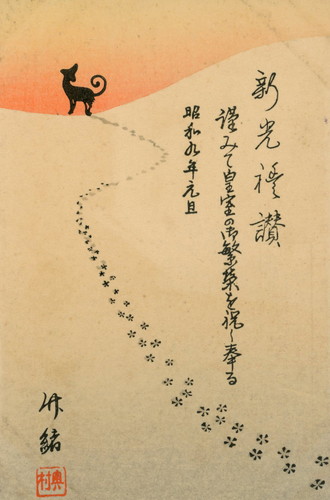 新光禮讃
謹みて皇室の御繁榮を祝し奉る
昭和九年元旦
竹緒
奥村